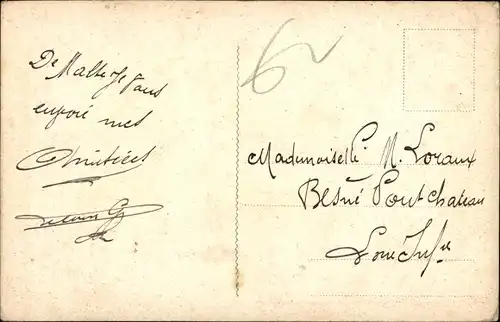 De Malte Je vous
envoie mes
Amitiées
Mademoiselle M. Loraux
Besné Pontchateau
Loire Infre